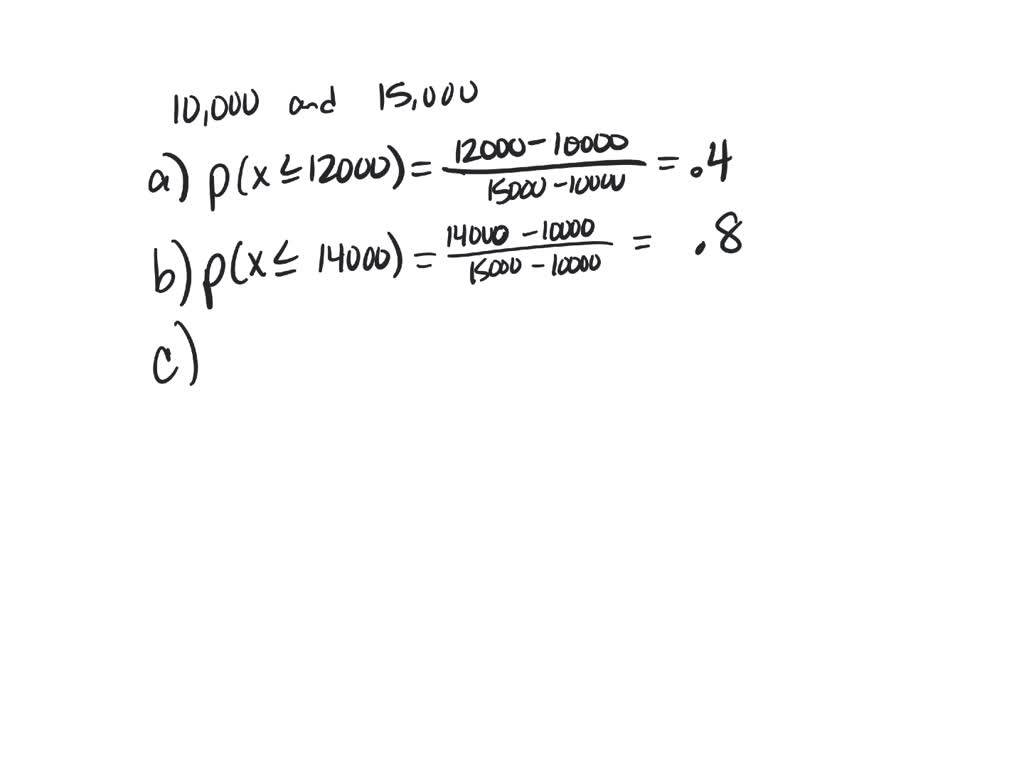 10,000 and 15,000
a) p(x ≤ 12000) = 12000 - 10000 / 15000 - 10000 = .4
b) p(x ≤ 14000) = 14000 - 10000 / 15000 - 10000 = .8
c)